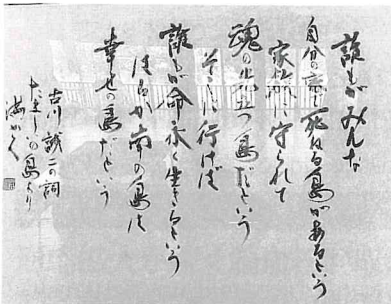 誰もがみんな
自分の家で死ねる島があるという
家族に守られて
魂の先立つ島だという
そこに行けば
誰もが命永く生きるという
はるか南の島は
幸せの島だという
古川誠二の詞
たましいの島より